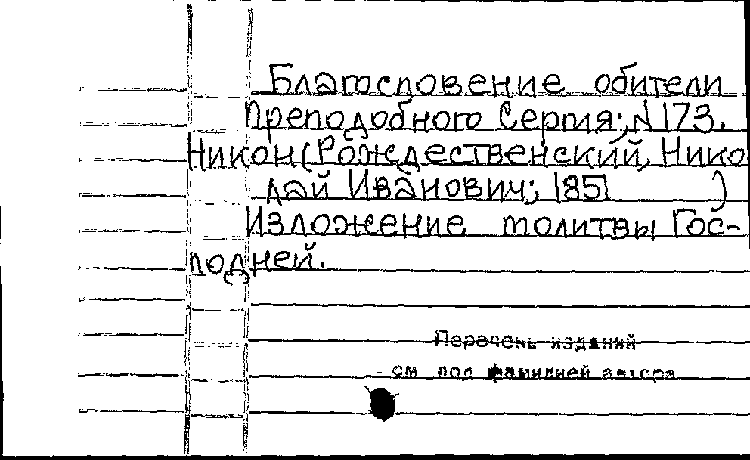 Благословение обители
Преподобного Сергия; N 173.
Никон (Рождественский, Нико
лай Иванович; 1851 )
Изложение молитвы Гос-
подней.
Перечень изданий
см под фамилией автора